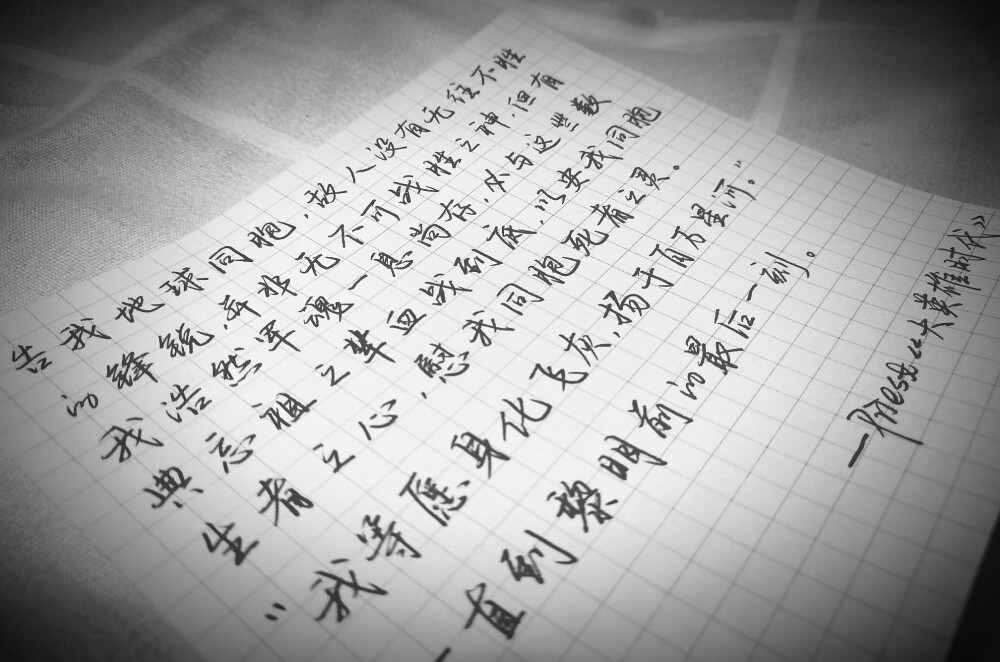 告我地球同胞,敌人没有无往不胜
的锋锐,亦非无不可战胜之神,但有
我浩然军魂一息尚存,必与这些数
典忘祖之辈血战到底,以安我同胞
生者之心,慰我同胞死者之灵。
“我等愿身化飞灰,扬于百万星河。”
一直到黎明前的最后一刻。
—Priest《大英雄时代》